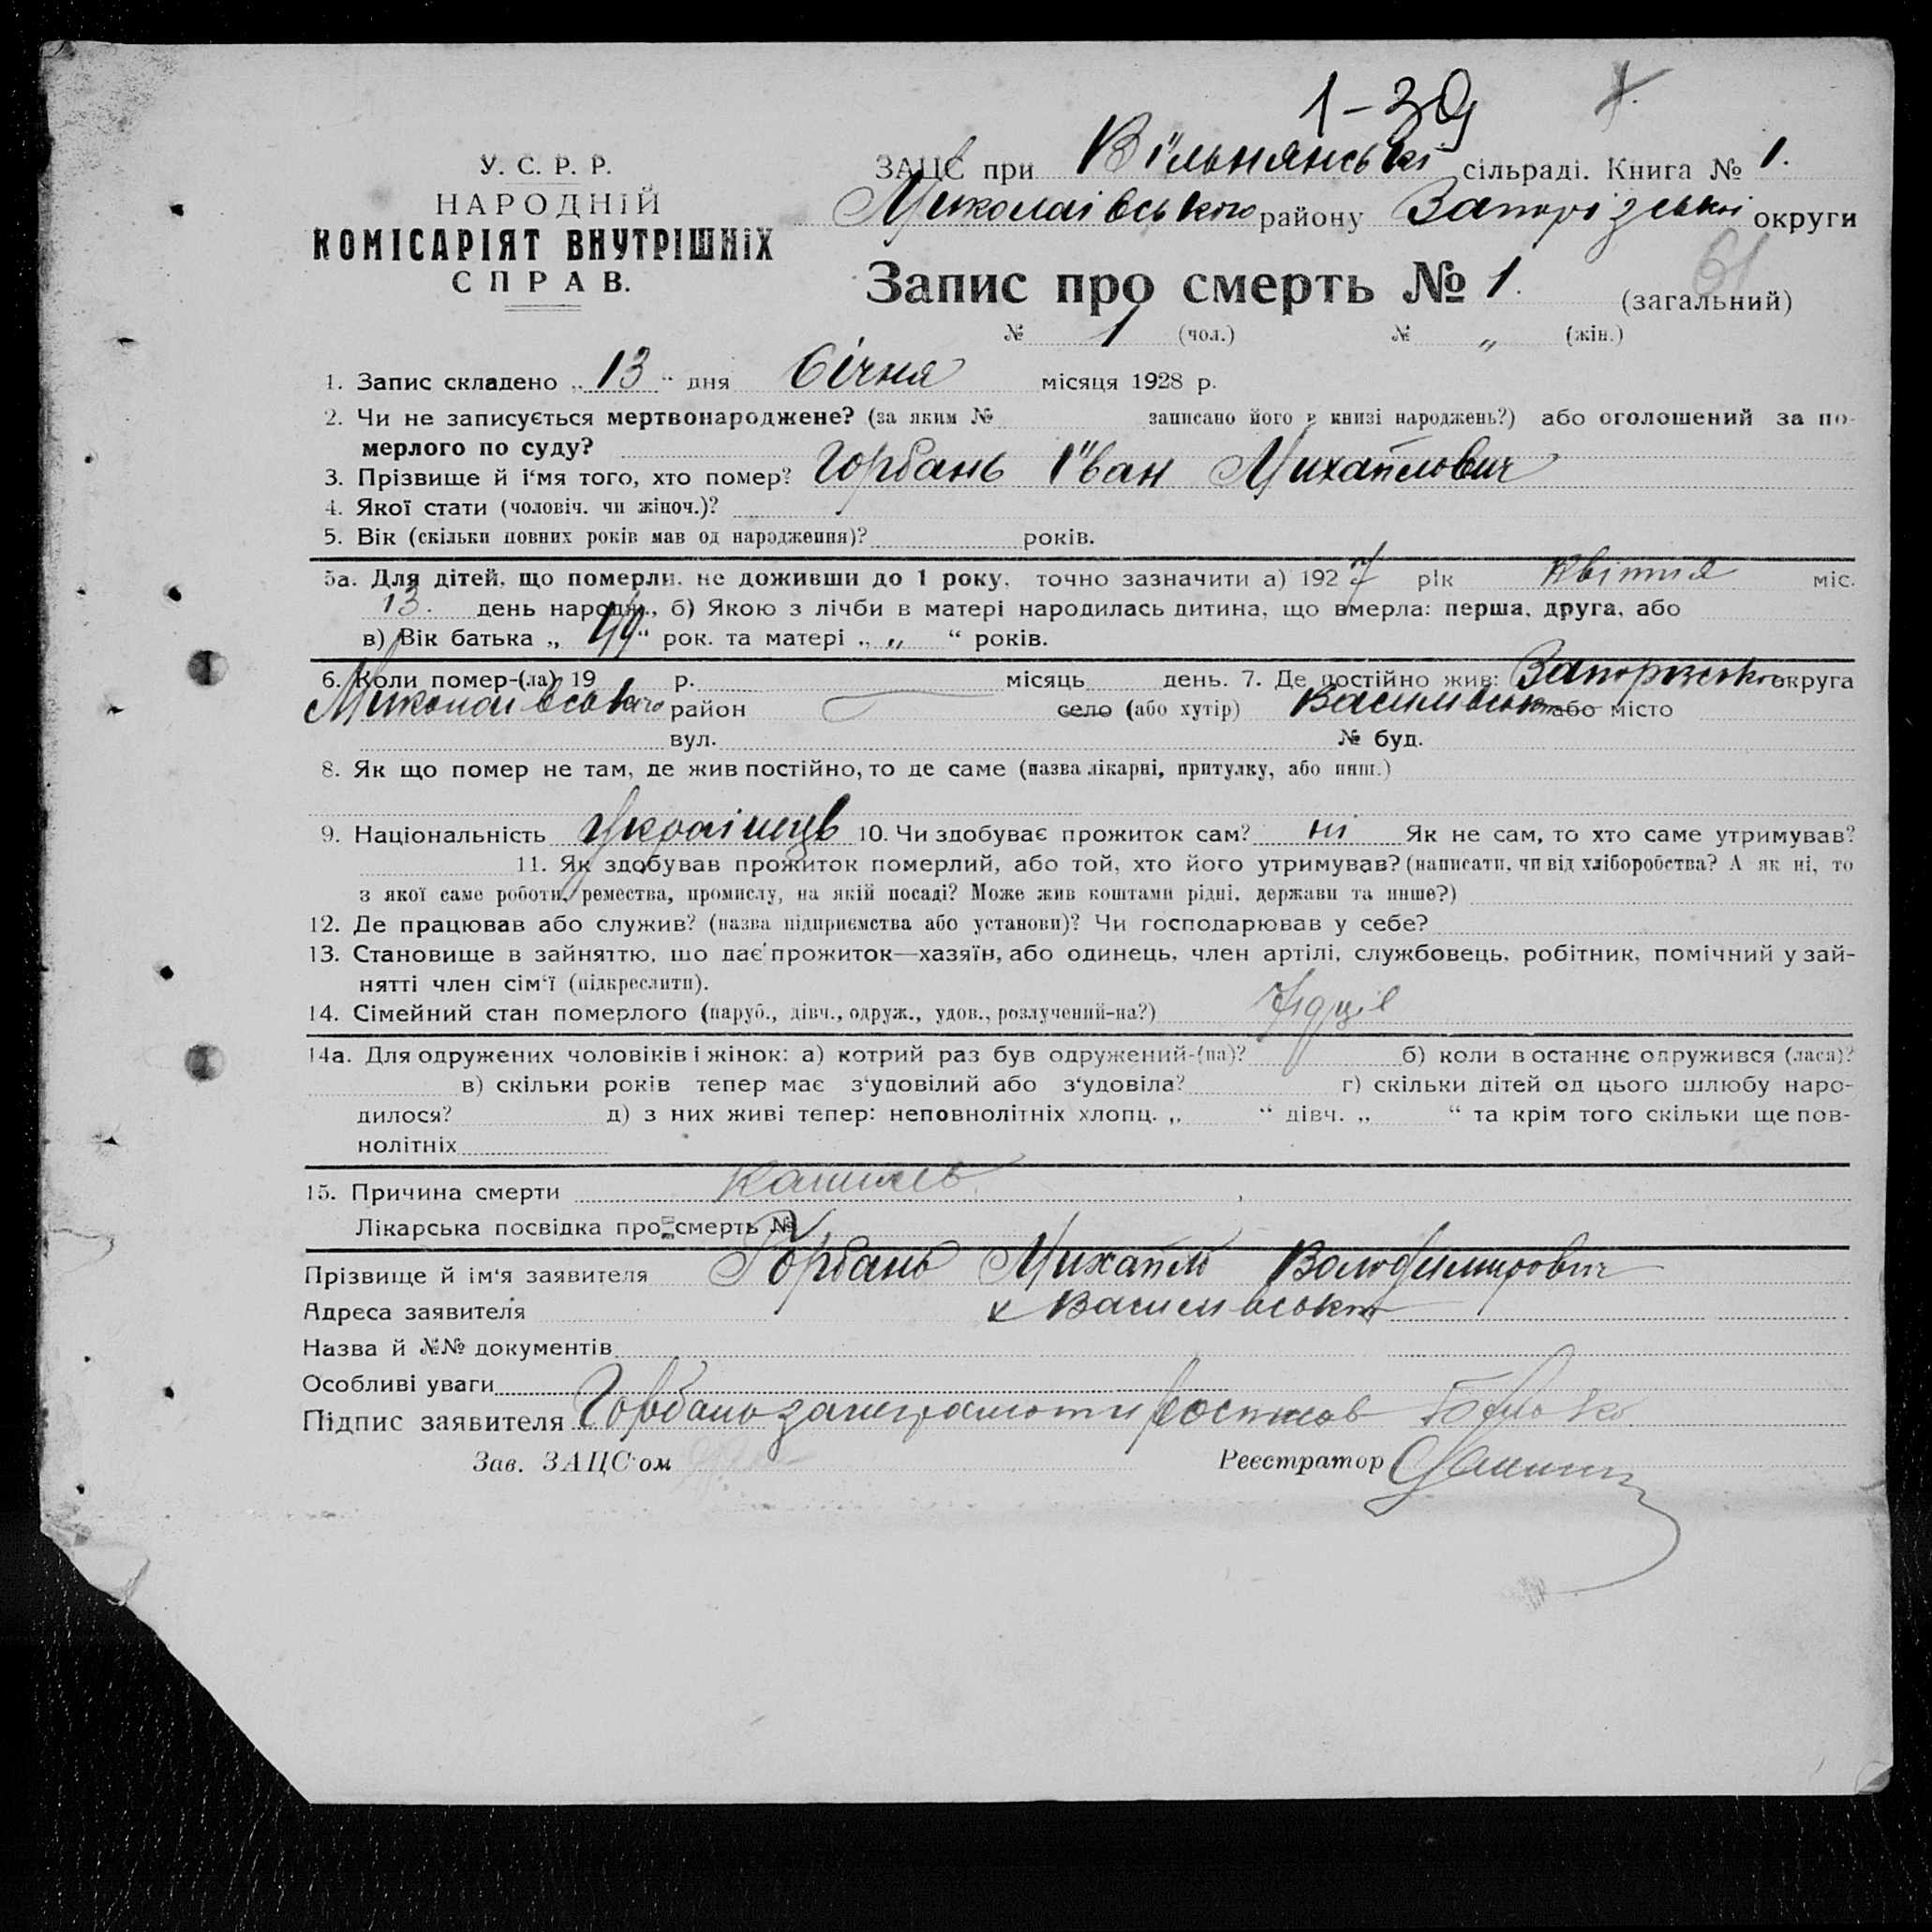 1-39
У. С. Р. Р.
НАРОДНІЙ
КОМІСАРІЯТ ВНУТРІШНІХ
СПРАВ.
ЗАЦС при Вільнянські сільраді. Книга № 1.
Миколаівського району Запорізькоі округи
61
Запис про смерть № 1. (загальний)
№ 1 (чол.) № „ (жін.)
1. Запис складено „13“ дня Січня місяця 1928 р.
2. Чи не записується мертвонароджене? (за яким № записано його в книзі народжень?) або оголошений за по-
мерлого по суду?
3. Прізвище й і'мя того, хто помер? Горбань Іван Михайлович
4. Якої стати (чоловіч. чи жіноч.)?
5. Вік (скільки повних років мав од народження)? років.
5а. Для дітей, що померли, не доживши до 1 року, точно зазначити а) 1927 рік Квітня міс.
13. день народж., б) Якою з лічби в матері народилась дитина, що вмерла: перша, друга, або
в) Вік батька „ 49“ рок. та матері „ „ “ років.
6. Коли помер-(ла) 19 р. місяць день. 7. Де постійно жив: округа
Миколаівського район село (або хутір) або місто
вул. № буд.
8. Як що помер не там, де жив постійно, то де саме (назва лікарні, притулку, або инш.)
9. Національність Украінець 10. Чи здобуває прожиток сам? ні Як не сам, то хто саме утримував?
11. Як здобував прожиток померлий, або той, хто його утримував? (написати, чи від хліборобства? А як ні, то
з якої саме роботи, ремества, промислу, на якій посаді? Може жив коштами рідні, держави та инше?)
12. Де працював або служив? (назва підприємства або установи)? Чи господарював у себе?
13. Становище в зайняттю, що дає прожиток—хазяїн, або одинець, член артілі, службовець, робітник, помічний у зай-
нятті член сім'ї (підкреслити).
14. Сімейний стан померлого (паруб., дівч., одруж., удов., розлучений-на?)
14а. Для одружених чоловіків і жінок: а) котрий раз був одружений-(на)? б) коли в останнє одружився (лася)?
в) скільки років тепер має з'удовілий або з'удовіла? г) скільки дітей од цього шлюбу наро-
дилося? д) з них живі тепер: неповнолітніх хлопц. „ “ дівч. „ “ та крім того скільки ще пов-
нолітніх
15. Причина смерти Кашиль
Лікарська посвідка про смерть №
Прізвище й ім'я заявителя Горбань Михайло Володимирович
Адреса заявителя х
Назва й №№ документів
Особливі уваги
Підпис заявителя Горбань
Зав. ЗАЦС'ом Реєстратор